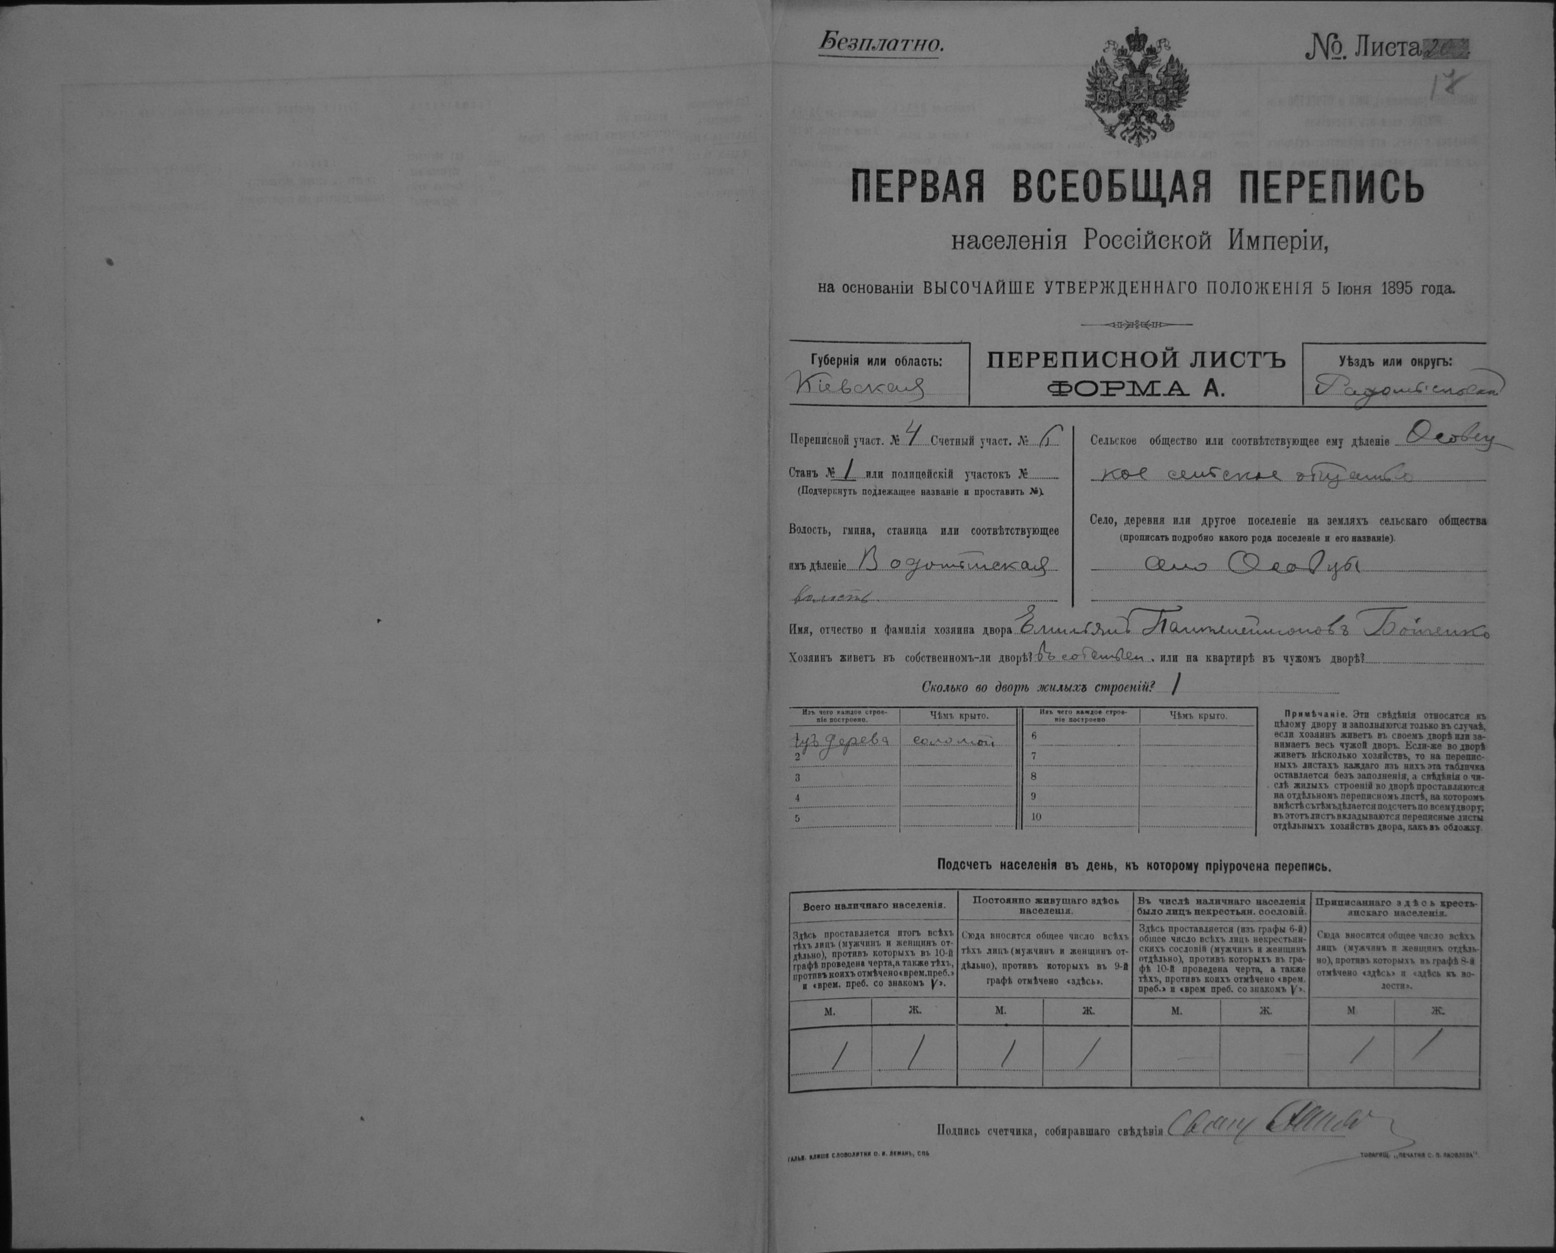 Безплатно.
№. Листа
17
ПЕРВАЯ ВСЕОБЩАЯ ПЕРЕПИСЬ
населенія Россійской Имперіи,
на основаніи ВЫСОЧАЙШЕ УТВЕРЖДЕННАГО ПОЛОЖЕНІЯ 5 Іюня 1895 года.
Губернія или область:
Кіевская
ПЕРЕПИСНОЙ ЛИСТЪ
ФОРМА А.
Уѣздъ или округъ:
Переписной участ. № 4 Счетный участ. №
Станъ № 1 или полицейскій участокъ №
(Подчеркнуть подлежащее названіе и проставить №).
Волость, гмина, станица или соотвѣтствующее
имъ дѣленіе Водотыйская
волость
Сельское общество или соотвѣтствующее ему дѣленіе Осовец
кое сельское общество
Село, деревня или другое поселеніе на земляхъ сельскаго общества
(прописать подробно какого рода поселеніе и его названіе).
село Осовцы
Имя, отчество и фамилія хозяина двора Емельянъ Пантелеимоновъ
Хозяинъ живетъ въ собственномъ-ли дворѣ? въ собствен. или на квартирѣ въ чужомъ дворѣ?
Сколько во дворѣ жилыхъ строеній? 1
Изъ чего каждое строе-
ніе построено.
Чѣмъ крыто.
Изъ чего каждое строе-
ніе построено
Чѣмъ крыто.
1 изъ дерева соломой
2
3
4
5
6
7
8
9
10
Примѣчаніе. Эти свѣдѣнія относятся къ
цѣлому двору и заполняются только въ случаѣ,
если хозяинъ живетъ въ своемъ дворѣ или за-
нимаетъ весь чужой дворъ. Если-же во дворѣ
живетъ нѣсколько хозяйствъ, то на перепис-
ныхъ листахъ каждаго изъ нихъ эта табличка
оставляется безъ заполненія, а свѣдѣнія о чи-
слѣ жилыхъ строеній во дворѣ проставляются
на отдѣльномъ переписномъ листѣ, на которомъ
вмѣстѣ съ тѣмъ дѣлается подсчетъ по всему двору;
въ этотъ листъ вкладываются переписные листы
отдѣльныхъ хозяйствъ двора, какъ въ обложку.
Подсчетъ населенія въ день, къ которому пріурочена перепись.
Всего наличнаго населенія.
Здѣсь проставляется итогъ всѣхъ
тѣхъ лицъ (мужчинъ и женщинъ от-
дѣльно), противъ которыхъ въ 10-й
графѣ проведена черта, а также тѣхъ,
противъ коихъ отмѣчено «врем. преб.»
и «врем. преб. со знакомъ V».
Постоянно живущаго здѣсь
населенія.
Сюда вносится общее число всѣхъ
тѣхъ лицъ (мужчинъ и женщинъ от-
дѣльно), противъ которыхъ въ 9-й
графѣ отмѣчено «здѣсь».
Въ числѣ наличнаго населенія
было лицъ некрестьян. сословій.
Здѣсь проставляется (изъ графы 6-й)
общее число всѣхъ лицъ некрестьян-
скихъ сословій (мужчинъ и женщинъ
отдѣльно), противъ которыхъ въ гра-
фѣ 10-й проведена черта, а также
тѣхъ, противъ коихъ отмѣчено «врем.
преб.» и «врем преб. со знакомъ V».
Приписаннаго здѣсь кресть-
янскаго населенія.
Сюда вносится общее число всѣхъ
лицъ (мужчинъ и женщинъ отдѣль-
но), противъ которыхъ въ графѣ 8-й
отмѣчено «здѣсь» и «здѣсь въ во-
лости».
М. Ж. М. Ж. М. Ж. М Ж.
1 1 1 1 — — 1 1
Подпись счетчика, собиравшаго свѣдѣнія
ГАЛЬВ. КЛИШЕ СЛОВОЛИТНИ О. И. ЛЕМАНЪ, СПБ
ТОВАРИЩ. „ПЕЧАТНЯ С. П. ЯКОВЛЕВА".